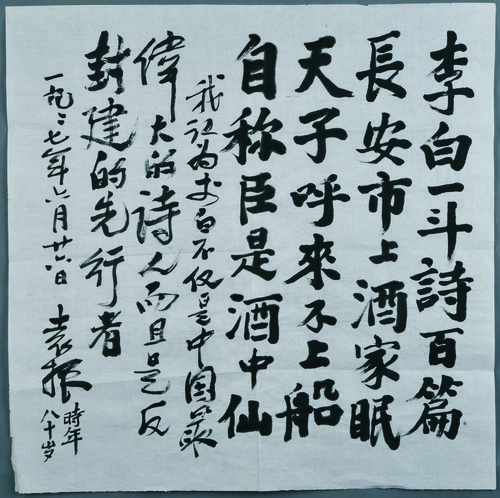 李白一斗詩百篇
長安市上酒家眠
天子呼來不上船
自称臣是酒中仙
我认为李白不仅是中国最
偉大的詩人而且是反
封建的先行者
一九八七年六月廿六日 袁振
時年
八十岁